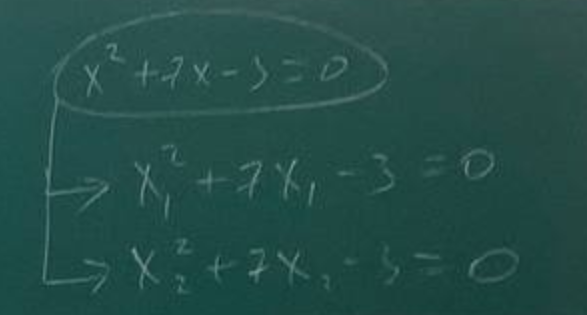 x² + 7x - 3 = 0
→ x₁² + 7x₁ - 3 = 0
→ x₂² + 7x₂ - 3 = 0